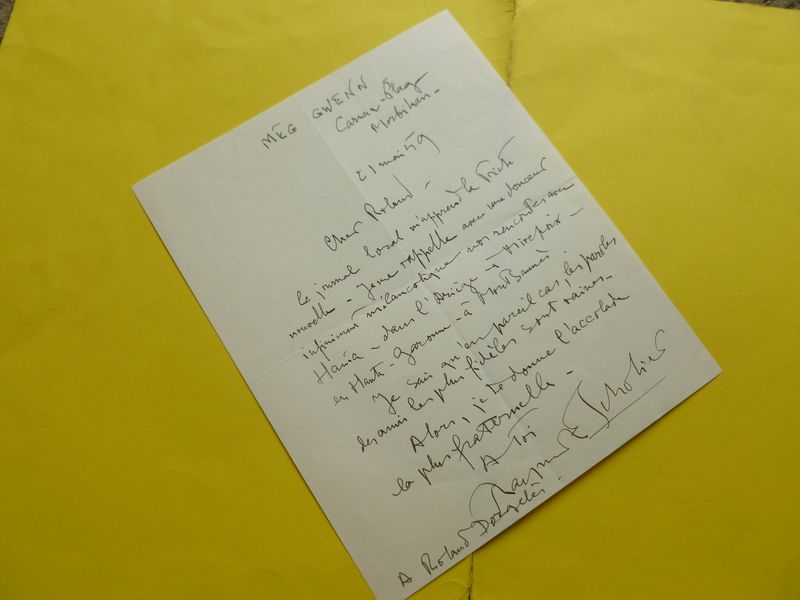 MEG GWENN
Carnac-Plage
Morbihan -
21 mai 59
Cher Roland -
Le journal local m'apprend la triste
nouvelle - Je me rappelle avec une douceur
infiniment mélancolique nos rencontres avec
Hania - dans l'Ariège - à Mirepoix -
en Haute-Garonne - à
Je sais qu'en pareil cas, les paroles
des amis les plus fidèles sont vaines -
Alors, je te donne l'accolade
la plus fraternelle -
A Toi
Raymond Escholier
A Roland Dorgelès -